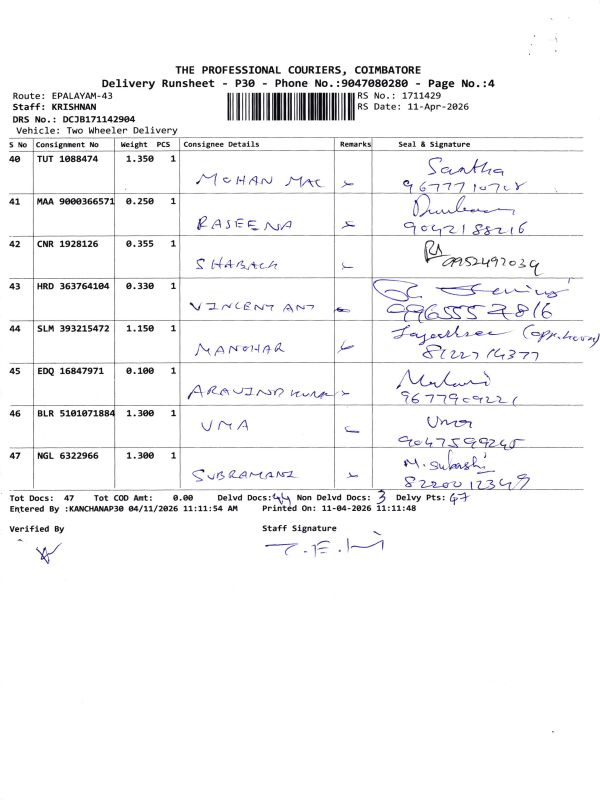 THE PROFESSIONAL COURIERS, COIMBATORE
Delivery Runsheet - P30 - Phone No.:9047080280 - Page No.:4
Route: EPALAYAM-43 RS No.: 1711429
Staff: KRISHNAN RS Date: 11-Apr-2026
DRS No.: DCJB171142904
Vehicle: Two Wheeler Delivery
S No Consignment No Weight PCS Consignee Details Remarks Seal & Signature
40 TUT 1088474 1.350 1 Santha
MOHAN MAC
41 MAA 9000366571 0.250 1
RASEENA 9042188216
42 CNR 1928126 0.355 1
SHABACK 9952492039
43 HRD 363764104 0.330 1
VINCENT ANT
44 SLM 393215472 1.150 1
MANOHAR 8122714377
45 EDQ 16847971 0.100 1
ARAVIND KUMAR 9677909221
46 BLR 5101071884 1.300 1 Uma
UMA 9047599245
47 NGL 6322966 1.300 1 M. Subashi
SUBRAMANI 8220012349
Tot Docs: 47 Tot COD Amt: 0.00 Delvd Docs: 44 Non Delvd Docs: 3 Delvy Pts: 47
Entered By :KANCHANAP30 04/11/2026 11:11:54 AM Printed On: 11-04-2026 11:11:48
Verified By Staff Signature